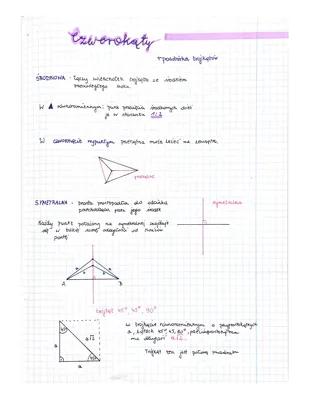 Czworokąty
+ powtórka trójkątów
ŚRODKOWA - łączy wierzchołek trójkąta ze środkiem
przeciwległego boku.
W ▲ równoramiennym: punkt przecięcia środkowych dzieli
je w stosunku 1:2
W czworokącie wypukłym przekątna może leżeć na zewnątrz.
przekątna
SYMETRALNA - prosta prostopadła do odcinka
przechodząca przez jego środek
symetralna
Każdy punkt położony na symetralnej znajduje
się w takiej samej odległości od końców
A
B
trójkąt 45°, 45°, 90°
45°
a
a√2
a
W trójkącie równoramiennym o przyprostokątnych
a, kątach 45°, 45°, 90°, przeciwprostokątna
ma długość a√2.
Trójkąt ten jest połową kwadratu